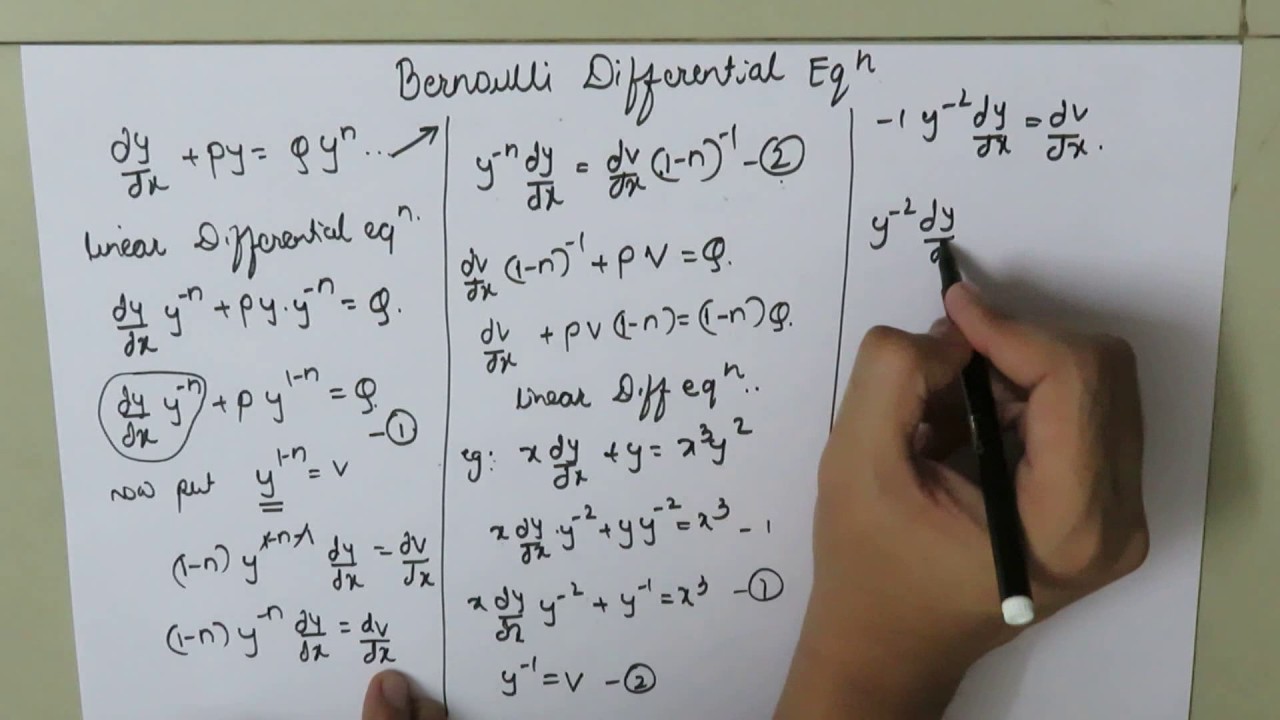 Bernoulli Differential Eqⁿ
dy/dx + py = Q yⁿ ...
Linear Differential eqⁿ.
dy/dx y⁻ⁿ + py · y⁻ⁿ = Q.
dy/dx y⁻ⁿ + p y¹⁻ⁿ = Q.
- ①
now put y¹⁻ⁿ = v
(1-n) y¹⁻ⁿ⁻¹ dy/dx = dv/dx
(1-n) y⁻ⁿ dy/dx = dv/dx
y⁻ⁿ dy/dx = dv/dx (1-n)⁻¹ - ②
dv/dx (1-n)⁻¹ + p v = Q.
dv/dx + pv (1-n) = (1-n) Q.
Linear Diff eqⁿ..
eg: x dy/dx + y = x³y²
x dy/dx · y⁻² + y y⁻² = x³ - 1
x dy/dx y⁻² + y⁻¹ = x³ - ①
y⁻¹ = v - ②
-1 y⁻² dy/dx = dv/dx.
y⁻² dy/d